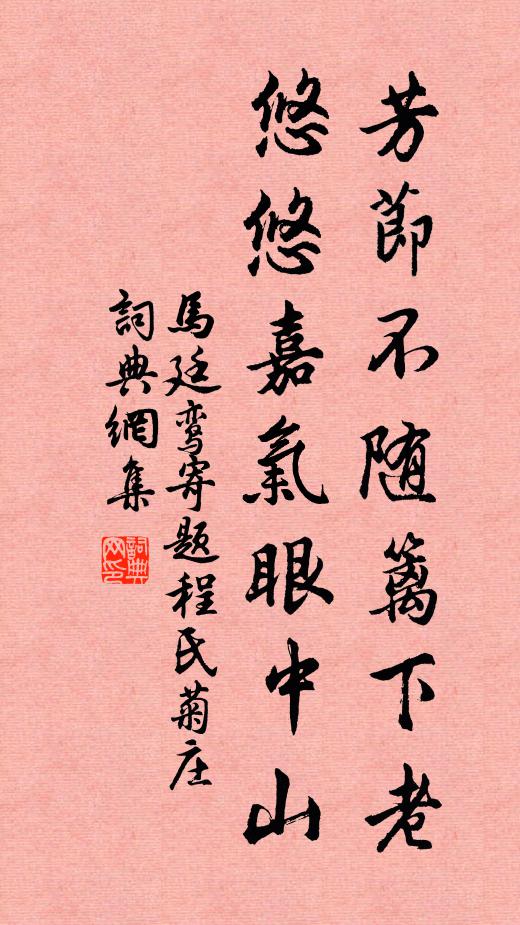 芳節不随籬下老
悠悠嘉氣眼中山
馬廷鸾寄題程氏菊庄
詞典網集
詞典网印